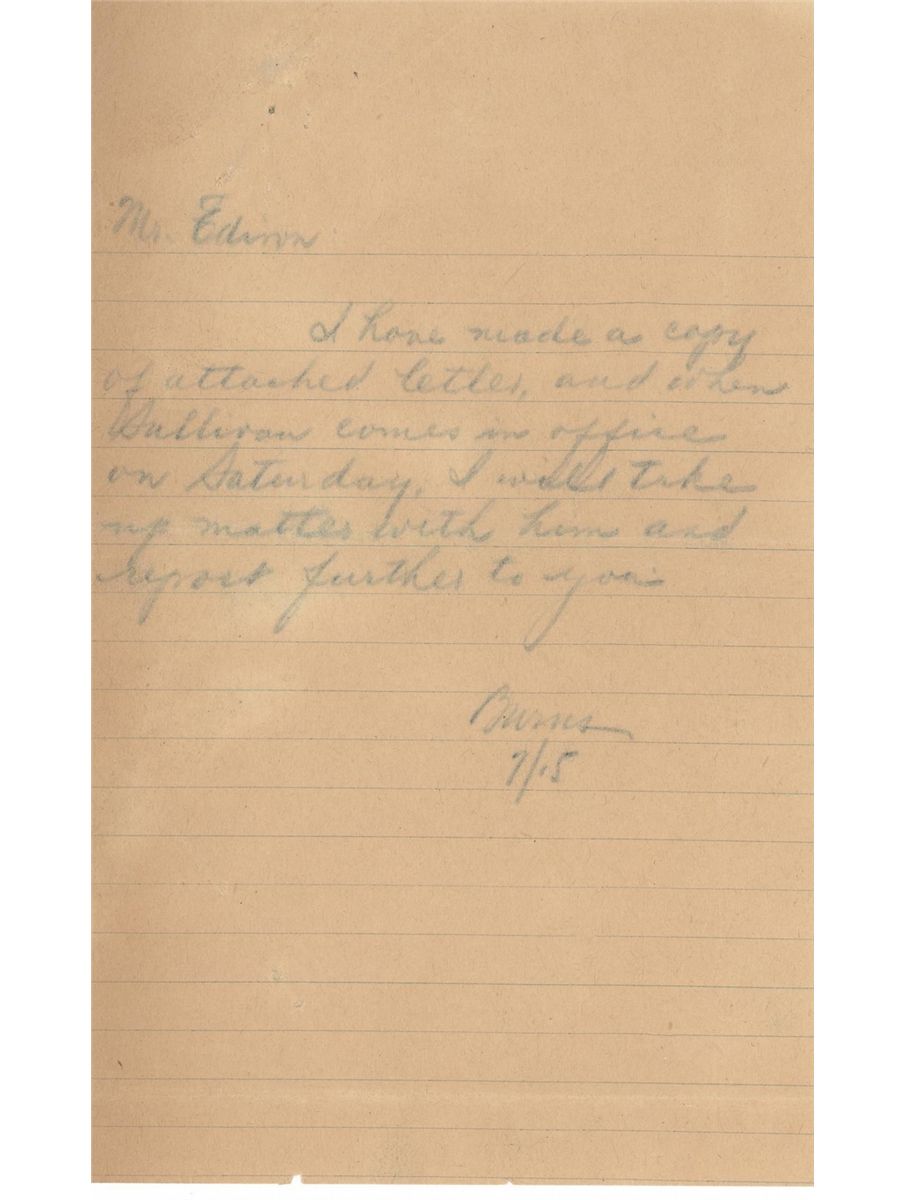 Mr. Edison
I have made a copy
of attached letter, and when
Sullivan comes in office
on Saturday, I will take
up matter with him and
report further to you
Burns
7/15